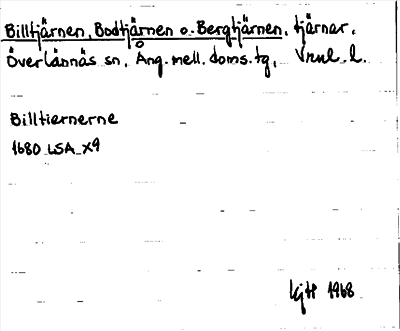 Billtjärnen, Bodtjärnen o. Bergtjärnen, tjärnar,
Överlännäs sn, Ång. mell. doms. tg, Vnl. l.
Billtiernerne
1680 LSA X9
1968